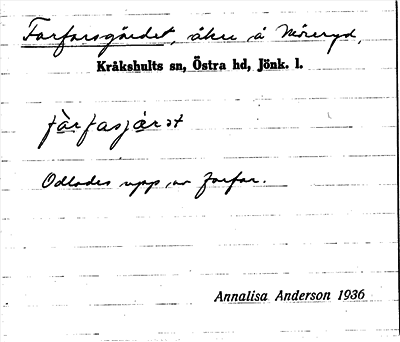 Farfarsgärdet, åker å Möreryd,
Kråkshults sn, Östra hd, Jönk. l.
fàrfasjæ̀rət
Odlades upp av farfar.
Annalisa Anderson 1936